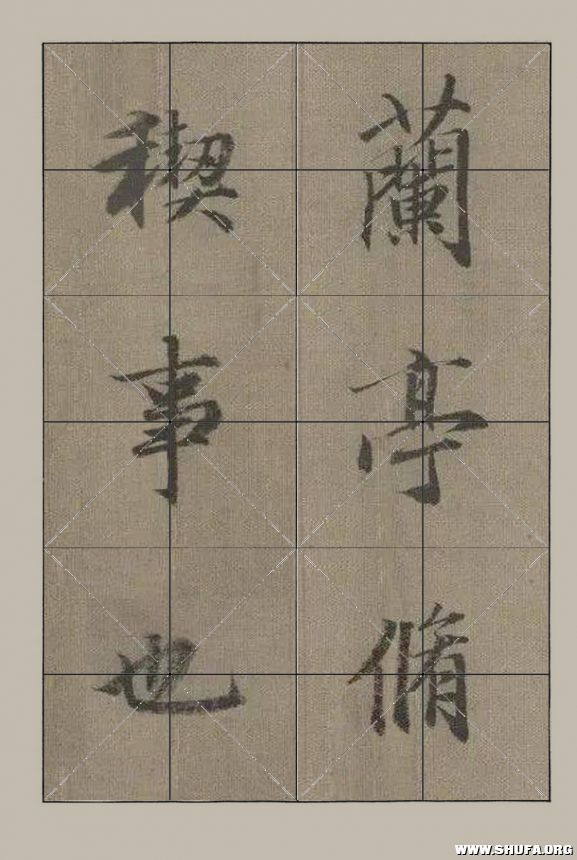 蘭亭脩
稧事也
WWW.SHUFA.ORG